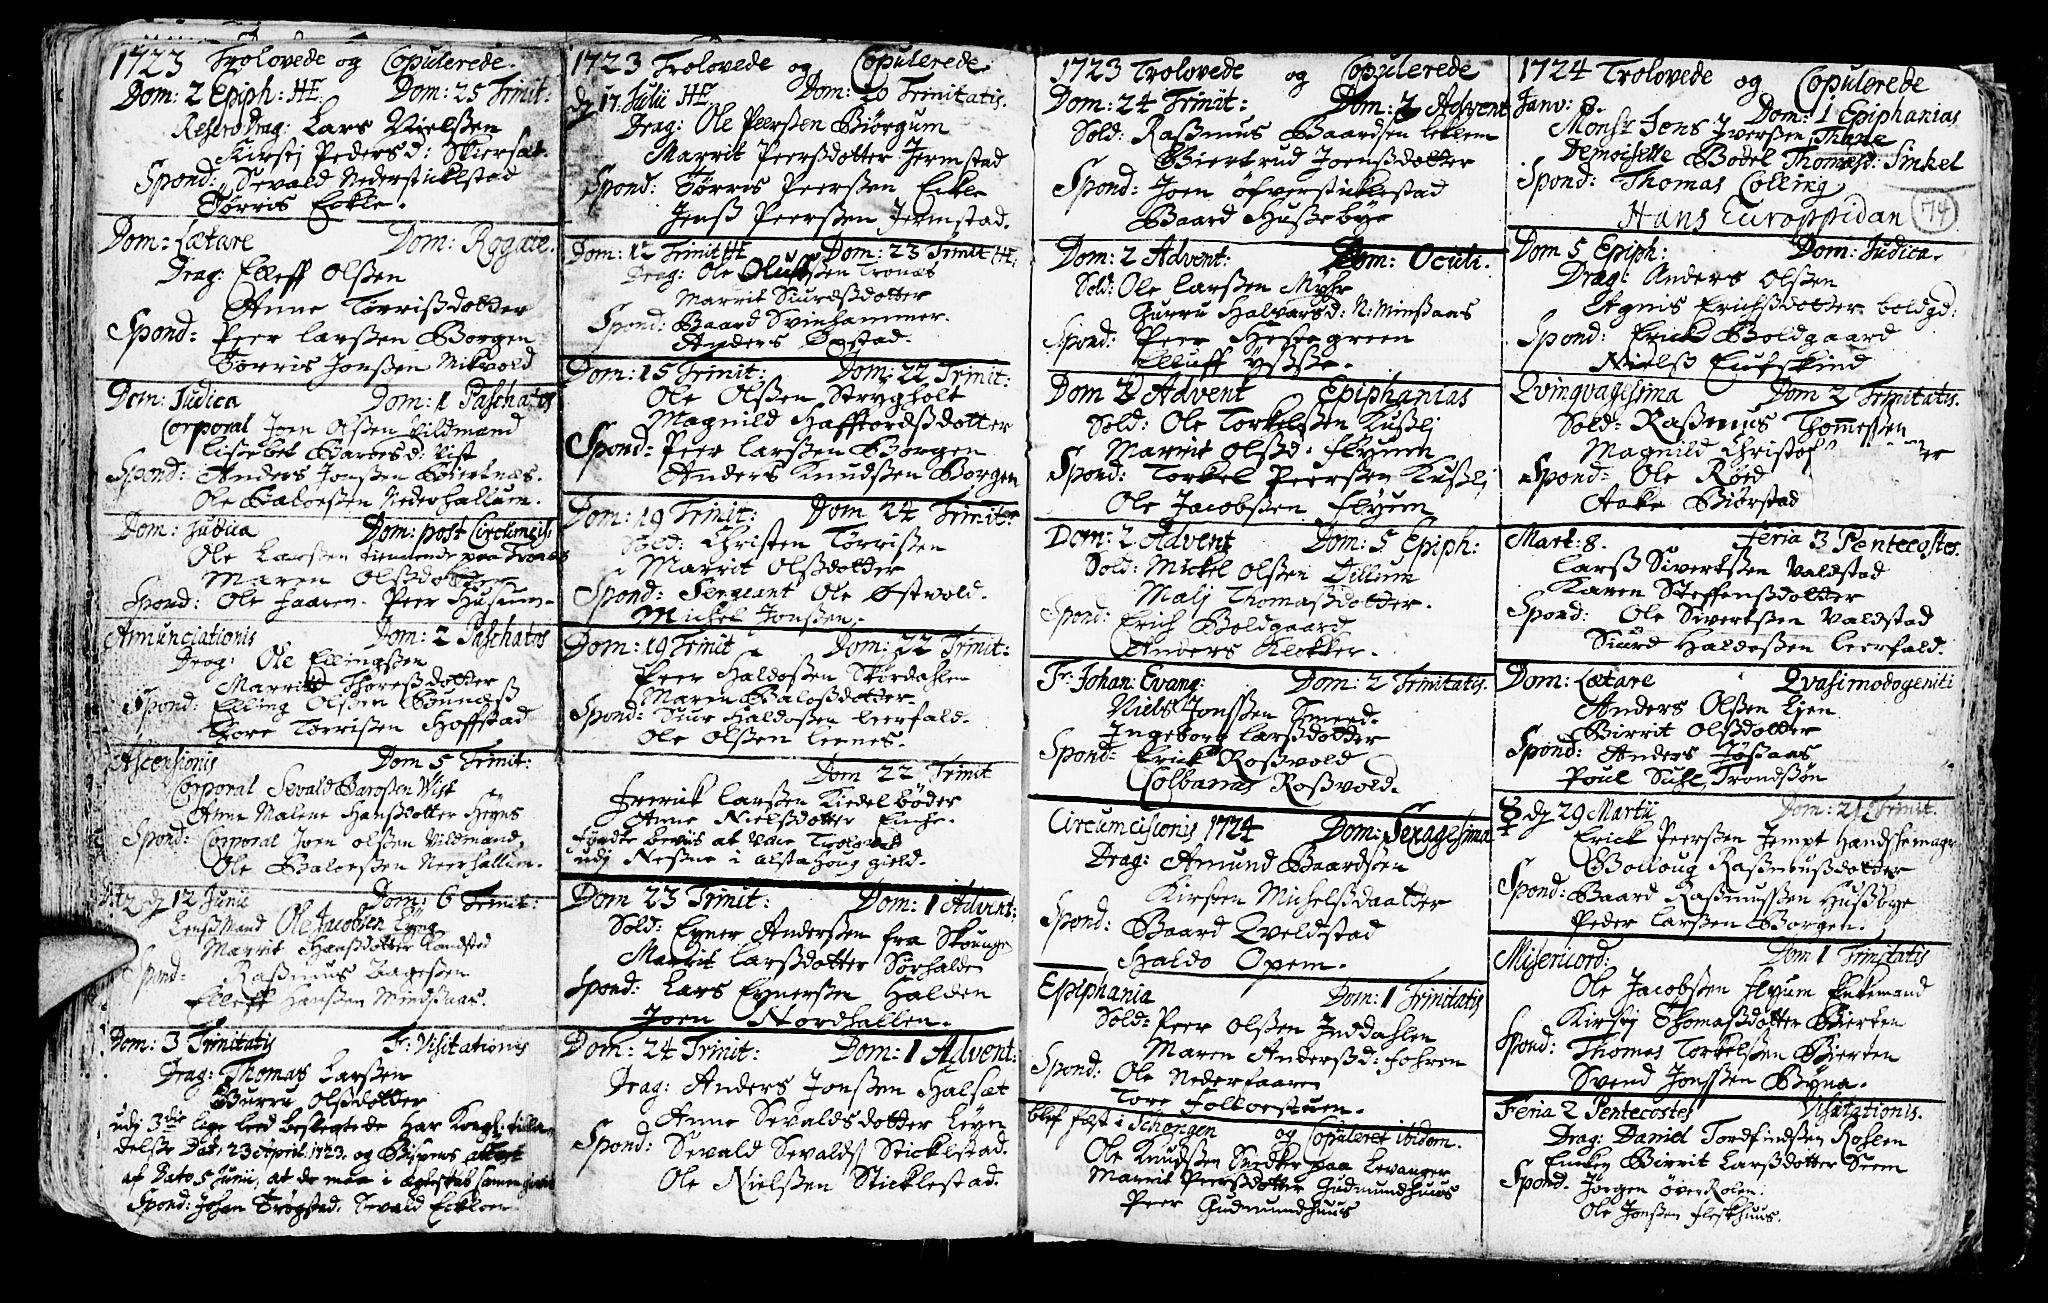 1723 Trolovede og Copulerede.
Dom: 2 Epiph: HE. Dom: 25 Trinit:
Resero Drag: Lars Nielsen
Kirstj Pedersd: Skiersæt.
Spond: Sevald Nedersticklstad
Törris Eckle.
Dom: Lætare Dom: Rogate.
Drag: Elleff Olsen
Anne Törrisdotter
Spond: Peer Larssen Borgen
Törris Jonssen Mikvold
Dom: Judica Dom: 1 Paschatos
Corporal Joen Olsen Vildmand
Lisebet Baroesd: Vist
Spond: Anders Jonssen Biertnæs.
Ole Baloessen Nederhallum.
Dom: Judica Dom: post Circumcis:
Ole Larssen tienende paa Tronæs
Maren Olsdotter
Spond: Ole Faaren. Peer Husum.
Annunciationis Dom: 2 Paschatos
Drag: Ole Ellingssen
Marrit Thoresdotter
Spond: Elling Olsen Bunæss
Thore Törrissen Hoffstad
Ascensionis Dom 5 Trinit:
Corporal Sevald Barossen Vist
Anne Malene Hansdotter Heyns
Spond: Corporal Joen Olsen Vildmand,
Ole Baloessen Neerhallum.
dj 12 Junii Dom: 6 Trinit:
Lensmand Ole Jacobsen Eyng
Marrit Hansdotter Landsted
Spond: Rasmus Aagessen
Elleff Hanssen Mindsaas.
Dom: 3 Trinitatis F: Visitationis
Drag: Thomas Larssen
Gurru Olsdotter
udj 3die lige leed beslegtede har Kongl: tilla
delse Dat: 23 April 1723. og Bispens attest
af Dato 5 Junii, at de maa i Egteskab sammen
Spond: Johan Trögstad. Sevald Eckloer
1723 Trolovede og Copulerede.
dj 17. Julii HE. Dom: 20 Trinitatis.
Drag: Ole Peersen Biörgum
Marrit Peersdotter Jermstad
Spond: Törris Peersen Eckle
Jens Peersen Jermstad.
Dom: 12 Trinit HE Dom: 23 Trinit HE:
Drag: Ole Oluffsen Tronæs
Marrit Siurdsdotter
Spond: Baard Svinhammer.
Anders Ogstad.
Dom: 15 Trinit: Dom: 22 Trinit:
Ole Olsen Strygholt
Magnild Haffordsdotter
Spond: Peer Larssen Borgen
Anders Knudsen Borgen
Dom: 19 Trinit: Dom 24 Trinit:
Sold: Christen Törrissen
Marrit Olsdotter
Spond: Sergeant Ole Östvold.
Michel Jonssen.
Dom: 19 Trinit Dom: 22 Trinit:
Peer Haldossen Skördahlen
Maren Balosdotter
Spond: Siur Haldossen Leerfald.
Ole Olsen Leenes.
Dom 22 Trinit
Frerick Larssen Kiedelböder
Anne Nielsdotter
förte beviis at være Trolovet
udj Nesne i Alstahoug gield.
Dom 23 Trinit: Dom: 1 Advent:
Sold: Eyner Andersen fra Skounge
Marrit Larsdotter Sörhalden
Spond: Lars Eynersen Halden
Joen Nordhallen.
Dom: 24 Trinit: Dom: 1 Advent:
Drag: Anders Jonsen Halsæt
Anne Sevaldsdotter Leyen
Spond: Sevald Sevalds Sticklestad.
Ole Nielssen Sticklestad.
1723 Trolovede og Copulerede
Dom: 24 Trinit: Dom: 3 Advent
Sold: Rasmus Baardsen Leklem
Biertrud Joensdotter
Spond: Joen Öfversticklestad
Baard Hussebye
Dom: 2 Advent: Dom: Oculi.
Sold: Ole Larssen Myhr
Gurru Halvarsd: N: Minsaas
Spond: Peer Hestegreen
Elluff Ysse.
Dom 2 Advent Epiphanias
Sold: Ole Torkelsen Kuslj
Marrit Olsd: Flyum
Spond: Torkel Peersen Kuslj
Ole Jacobssen Flyum
Dom: 2 Advent Dom: 5 Epiph:
Sold: Mickel Olsen Dillum
Malj Thomasdotter.
Spond: Erich Boldgaard
Anders Klokker.
Fr: Johan: Evang: Dom: 2 Trinitatis.
Niels Jonssen Smeed.
Ingeborg Larsdotter
Spond: Erick Rosvold
Colbanus Rosvold.
Circumcisionis 1724 Dom: Sexagesima
Drag: Amund Baardsen
Kirsten Michelsdaatter
Spond: Baard Qveldstad
Haldo Opem.
Epiphania Dom: 1 Trinitatis
Sold: Peer Olsen Inddahlen
Maren Andersd: Fohren
Spond: Ole Nederfaaren
Tore Folloestuen.
blef fæst i Schongen og Copuleret ibidem.
Ole Knudssen Snedker paa Levanger
Marrit Peersdotter Gudmundhuus
Peer Gudmundhuus
1724 Trolovede og Copulerede
Janv: 8. Dom: 1 Epiphanias
Monsr Jens Iversen Thane
Demoiselle Bodel Thomasd: Sinkel
Spond: Thomas Colling
Hans Europpidan
74
Dom 5 Epiph: Dom: Judica.
Drag: Anders Olsen
Agnis Erichsdotter boldgd:
Spond: Erick Boldgaard
Niels Eufskind
Qvinqvagesima Dom 2 Trinitatis.
Sold: Rasmus Thomessen
Magnild Christof
Spond: Ole Röed
Aake Biörstad
Mart: 8. Feria 3 Pentecostes.
Lars Sivertssen Valdstad
Karen Steffensdotter
Spond: Ole Sivertssen Valdstad
Siurd Haldossen Leerfald.
Dom: Lætare Qvasimodogeniti
Anders Olssen Lyen
Birrit Olsdotter
Spond: Anders Jössaas
Poul Suhl, Trondsön
☿ dj 29 Martii Dom: 21 Trinit.
Erick Peersen Jempt Handskemager
Bolloug Rasmusdotter
Spond: Baard Rasmussen Husbye
Peder Larssen Borgen.
Misericord: Dom 1 Trinitatis
Ole Jacobssen Flyum Enkemand
Kirstj Thomasdotter Bierken
Spond: Thomas Torkelssen Bierken
Svend Jonssen Byna.
Feria 2 Pentecostes Visitationis.
Drag: Daniel Tordfindsen Roheen
Encken Birrit Larsdotter Seem
Spond. Jörgen över Rolen:
Ole Jonssen Fleskhuus.